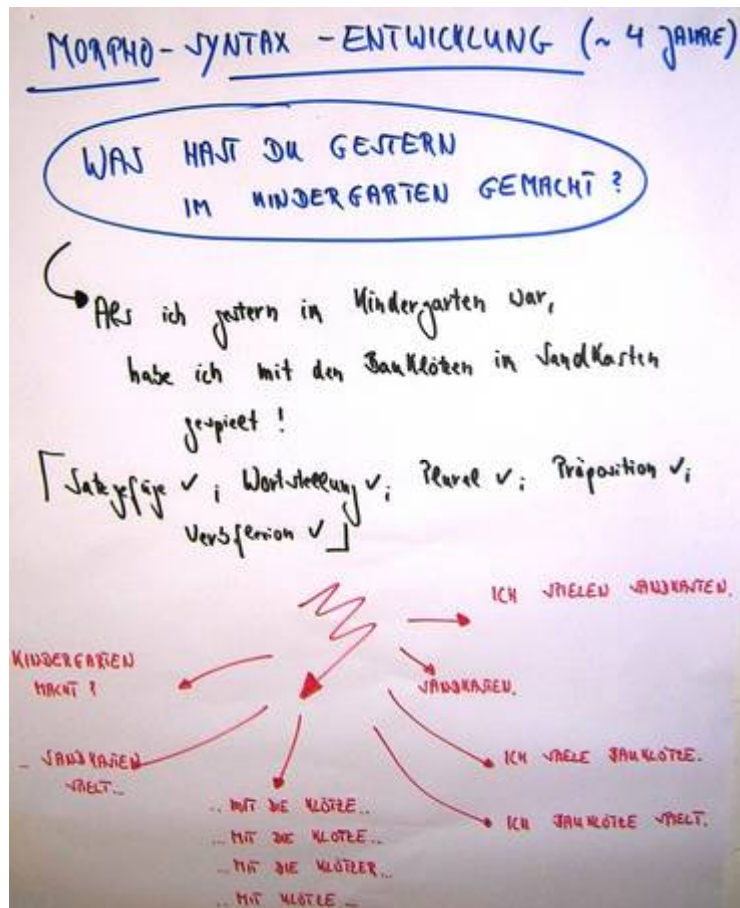 MORPHO-SYNTAX-ENTWICKLUNG (~ 4 JAHRE)
WAS HAST DU GESTERN
IM KINDERGARTEN GEMACHT?
Als ich gestern in Kindergarten war,
habe ich mit den Bauklötzen in Sandkasten
gespielt!
[Satzgefüge ✓; Wortstellung ✓; Plural ✓; Präposition ✓;
Verbflexion ✓]
ICH SPIELEN SANDKASTEN.
KINDERGARTEN
MACHT?
SANDKASTEN.
.. SANDKASTEN
SPIELT...
ICH SPIELE BAUKLÖTZE.
ICH BAUKLÖTZE SPIELT.
.. MIT DIE KLÖTZE..
... MIT DIE KLOTZE...
... MIT DIE KLÖTZER...
.. MIT KLÖTZE ...